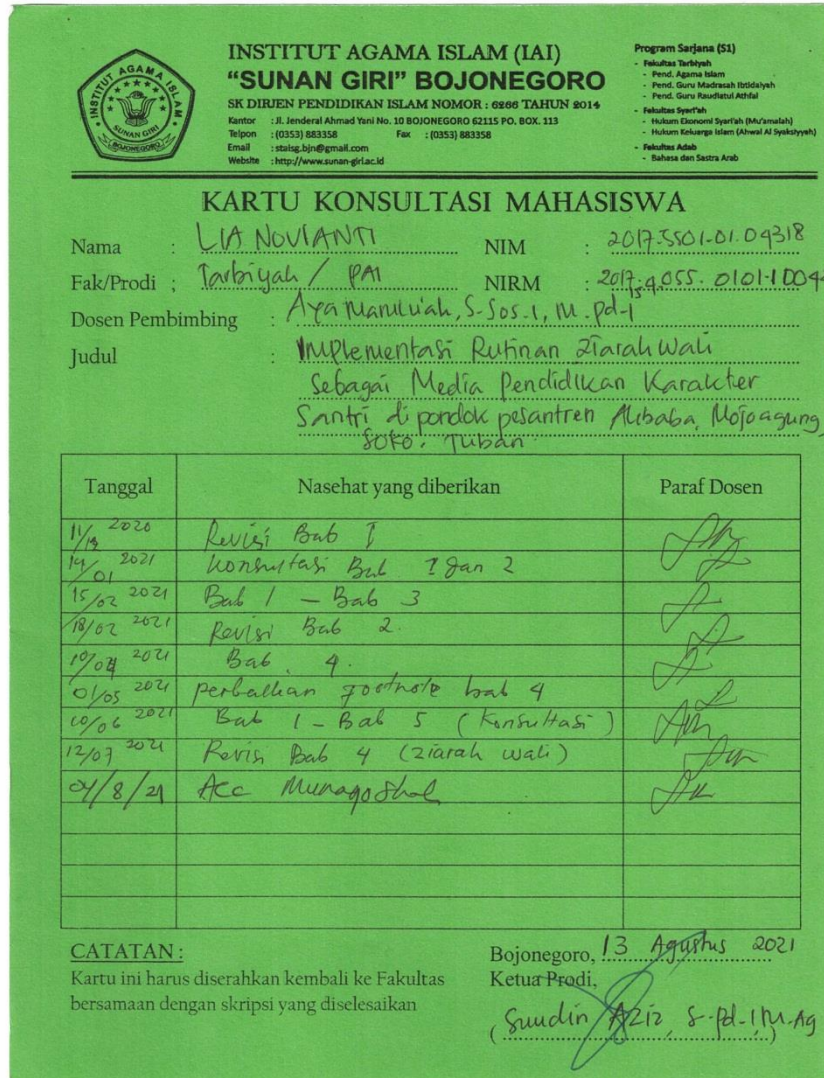 INSTITUT AGAMA ISLAM
SUNAN GIRI
BOJONEGORO
INSTITUT AGAMA ISLAM (IAI)
“SUNAN GIRI” BOJONEGORO
SK DIRJEN PENDIDIKAN ISLAM NOMOR : 6266 TAHUN 2014
Kantor : Jl. Jenderal Ahmad Yani No. 10 BOJONEGORO 62115 PO. BOX. 113
Telpon : (0353) 883358 Fax : (0353) 883358
Email : staisg.bjn@gmail.com
Website : http://www.sunan-giri.ac.id
Program Sarjana (S1)
- Fakultas Tarbiyah
- Pend. Agama Islam
- Pend. Guru Madrasah Ibtidaiyah
- Pend. Guru Raudlatul Athfal
- Fakultas Syari'ah
- Hukum Ekonomi Syari'ah (Mu'amalah)
- Hukum Keluarga Islam (Ahwal Al Syaksiyyah)
- Fakultas Adab
- Bahasa dan Sastra Arab
KARTU KONSULTASI MAHASISWA
Nama : LIA NOVIANTI NIM : 2017.5501.01.04318
Fak/Prodi ; Tarbiyah / PAI NIRM :
Dosen Pembimbing : S.Sos.I, M.Pd.I
Judul : Implementasi Rutinan Ziarah Wali
Sebagai Media Pendidikan Karakter
Santri di pondok pesantren Alibaba, Mojoagung,
Soko. Tuban
Tanggal Nasehat yang diberikan Paraf Dosen
2020 Revisi Bab I
14/01 2021 Konsultasi Bab 1 dan 2
15/02 2021 Bab 1 - Bab 3
18/02 2021 Revisi Bab 2.
10/04 2021 Bab 4.
01/05 2021 footnote bab 4
10/06 2021 Bab 1 - Bab 5 (Konsultasi)
12/07 2021 Revisi Bab 4 (ziarah wali)
04/8/21 Acc
CATATAN :
Kartu ini harus diserahkan kembali ke Fakultas
bersamaan dengan skripsi yang diselesaikan
Bojonegoro, 13 Agustus 2021
Ketua Prodi,
( Aziz, S.Pd.I, M.Ag )